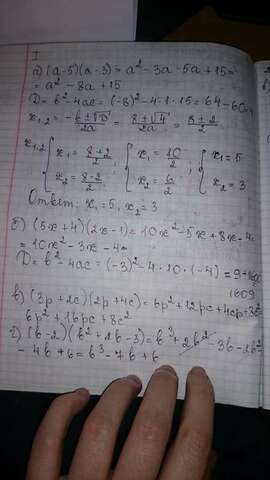 I
а) (a-5)(a-3) = a² - 3a - 5a + 15 =
= a² - 8a + 15
D = b² - 4ac = (-8)² - 4·1·15 = 64 - 60
x₁,₂ = -b ± √D / 2a = 8 ± √4 / 2a = 8 ± 2 / 2
x₁,₂ { x₁ = 8+2 / 2 { x₁ = 10 / 2 { x₁ = 5
x₂ = 8-2 / 2 x₂ = 6 / 2 x₂ = 3
Ответ: x₁ = 5, x₂ = 3
б) (5x+4)(2x-1) = 10x² - 5x + 8x - 4
= 10x² - 3x - 4
D = b² - 4ac = (-3)² - 4·10·(-4) = 9 +
1609
в) (3p+2c)(2p+4c) = 6p² + 12pc + 4cp +
6p² + 16pc + 8c²
г) (b-2)(b²+2b-3) = b³ + 2b² - 3b - 2b²
- 4b + 6 = b³ - 7b + 6